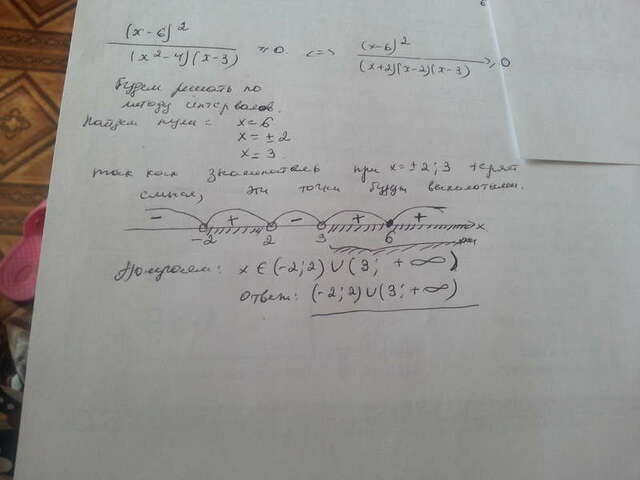 (x-6)² / (x²-4)(x-3) ≥ 0 <=> (x-6)² / (x+2)(x-2)(x-3) ≥ 0
Будем решать по
методу интервалов.
Найдем нули: x=6
x=±2
x=3.
так как знаменатель при x=±2; 3 теряет
смысл, эти точки будут выколотыми.
- + - + +
-2 2 3 6 x
Получаем: x ∈ (-2; 2) ∪ (3; +∞)
Ответ: (-2; 2) ∪ (3; +∞)